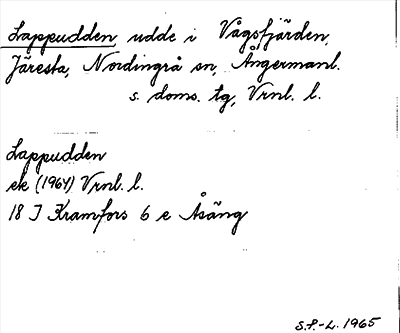 Lappudden, udde i Vågsfjärden,
Järesta, Nordingrå sn, Ångermanl.
s. doms. tg, Vrnl. l.
Lappudden
ek (1964) Vrnl. l.
18 J Kramfors 6 e Åsäng
S.F.-L. 1965